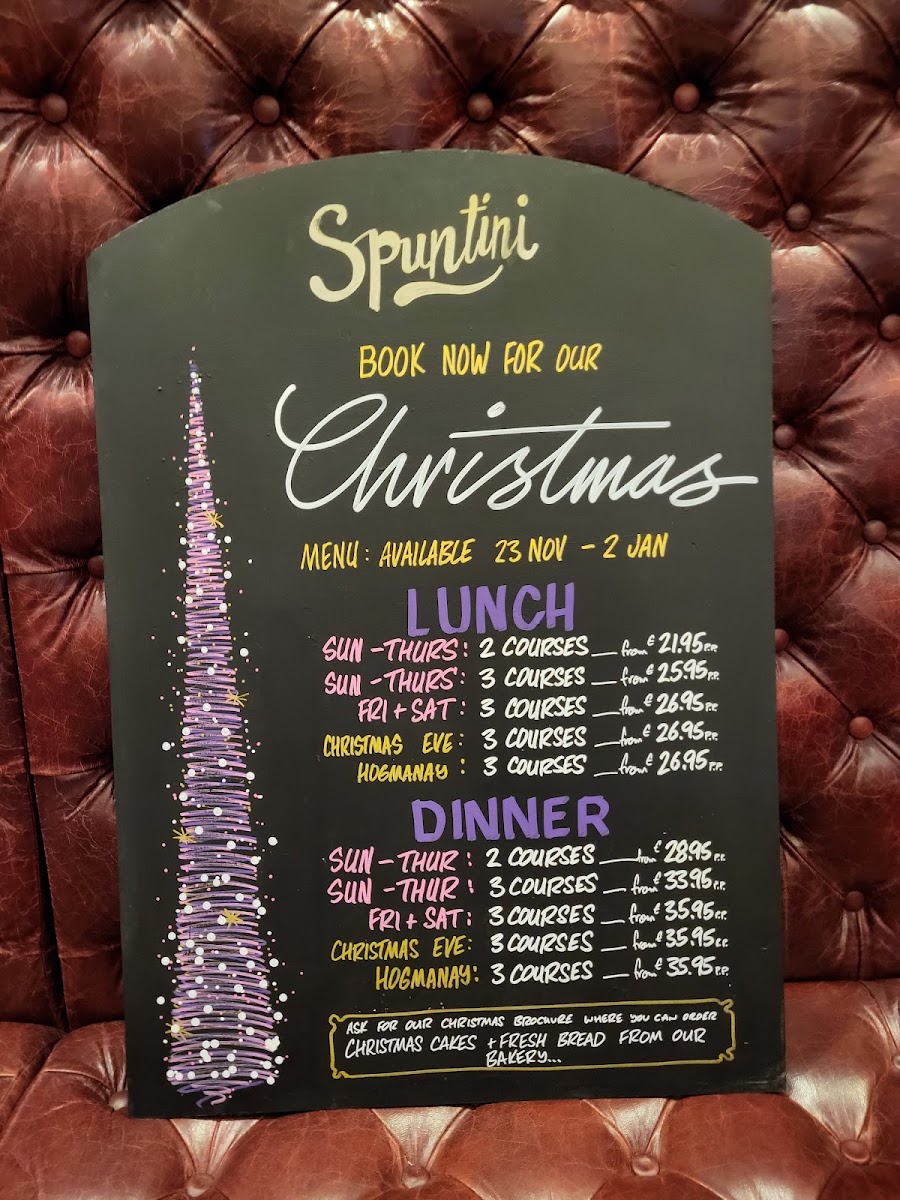 Spuntini
BOOK NOW FOR OUR
Christmas
MENU: AVAILABLE 23 NOV - 2 JAN
LUNCH
SUN - THURS: 2 COURSES __ from £ 21.95 P.P.
SUN - THURS: 3 COURSES __ from £ 25.95 P.P.
FRI + SAT: 3 COURSES __ from £ 26.95 P.P.
CHRISTMAS EVE: 3 COURSES __ from £ 26.95 P.P.
HOGMANAY: 3 COURSES __ from £ 26.95 P.P.
DINNER
SUN - THUR: 2 COURSES __ from £ 28.95 P.P.
SUN - THUR: 3 COURSES __ from £ 33.95 P.P.
FRI + SAT: 3 COURSES __ from £ 35.95 P.P.
CHRISTMAS EVE: 3 COURSES __ from £ 35.95 P.P.
HOGMANAY: 3 COURSES __ from £ 35.95 P.P.
ASK FOR OUR CHRISTMAS BROCHURE WHERE YOU CAN ORDER
CHRISTMAS CAKES + FRESH BREAD FROM OUR
BAKERY...